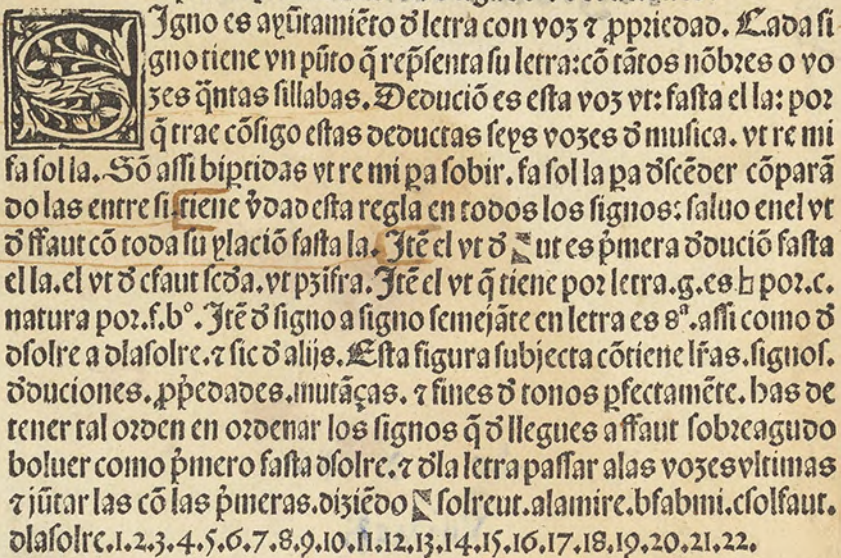 SIgno es ayũtamiẽto đ letra con voz ⁊ ꝓpriedad. Cada si
gno tiene vn pũto q̃ rep̃senta su letra: cõ tãtos nõbres o vo
zes q̃ntas sillabas. Deduciõ es esta voz vt: fasta el la: por
q̃ trae cõsigo estas deductas seys vozes đ musica. vt re mi
fa sol la. Sõ assi biꝑtidas vt re mi ꝑa sobir. fa sol la ꝑa đscẽder cõparã
do las entre si tiene v̄dad esta regla en todos los signos: saluo enel vt
đ ffaut cõ toda su ylaciõ fasta la. Itẽ el vt đ ut es p̃mera đduciõ fasta
el la. el vt đ cfaut scđa. vt pzifra. Itẽ el vt q̃ tiene por letra .g. es ♮ por .c.
natura por .f. bº. Itẽ đ signo a signo semejãte en letra es 8ª. assi como đ
dsolre a dlasolre. ⁊ sic đ alijs. Esta figura subjecta cõtiene lr̃as. signos.
đduciones. ꝓp̃edades. mutãças. ⁊ fines đ tonos ꝑfectamẽte. has de
tener tal orden en ordenar los signos q̃ đ llegues a ffaut sobreagudo
boluer como p̃mero fasta dsolre. ⁊ đla letra passar alas vozes vltimas
⁊ jũtar las cõ las p̃meras. diziẽdo solreut. alamire. bfabmi. csolfaut.
dlasolre. 1. 2. 3. 4. 5. 6. 7. 8. 9. 10. 11. 12. 13. 14. 15. 16. 17. 18. 19. 20. 21. 22.